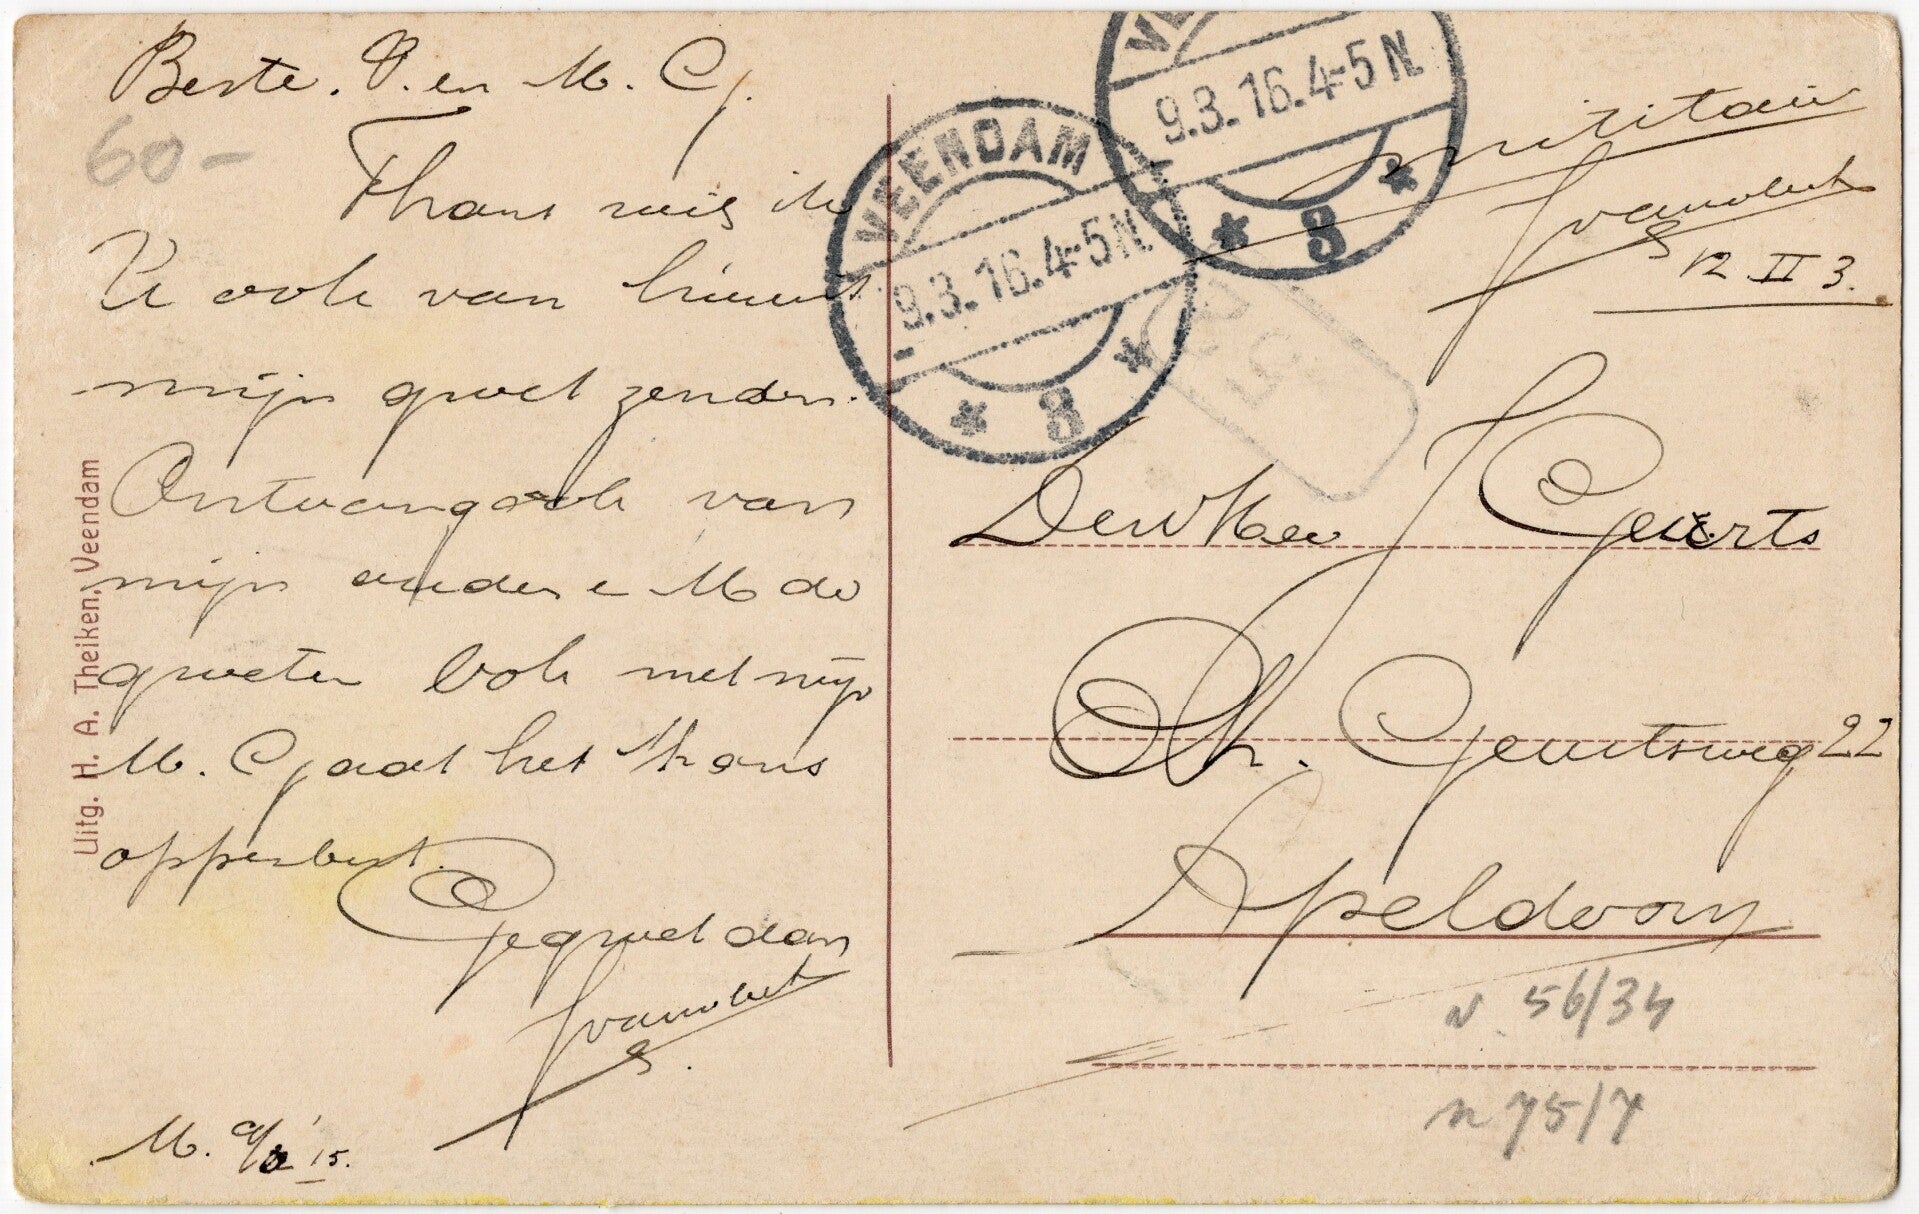 Beste. V. en M. G.
60-
Thans wil ik
U ook van hieruit
mijn groet zenden.
Ontvang ook van
mijn ouders e M de
groeten ook met mijn
M. G gaat het thans
opperbest.
Gegroet dan
J van vliet
M. 9/3 '15.
Uitg. H. A. Theiken, Veendam
VEENDAM
9.3.16.4-5N.
* 3 *
VE
9.3.16.4-5N.
* 3 *
militair
J van vliet
12 II 3.
Den Heer J Geerts
Ch. Geurtsweg 22
Apeldoorn
n. 56/34
n 75/7